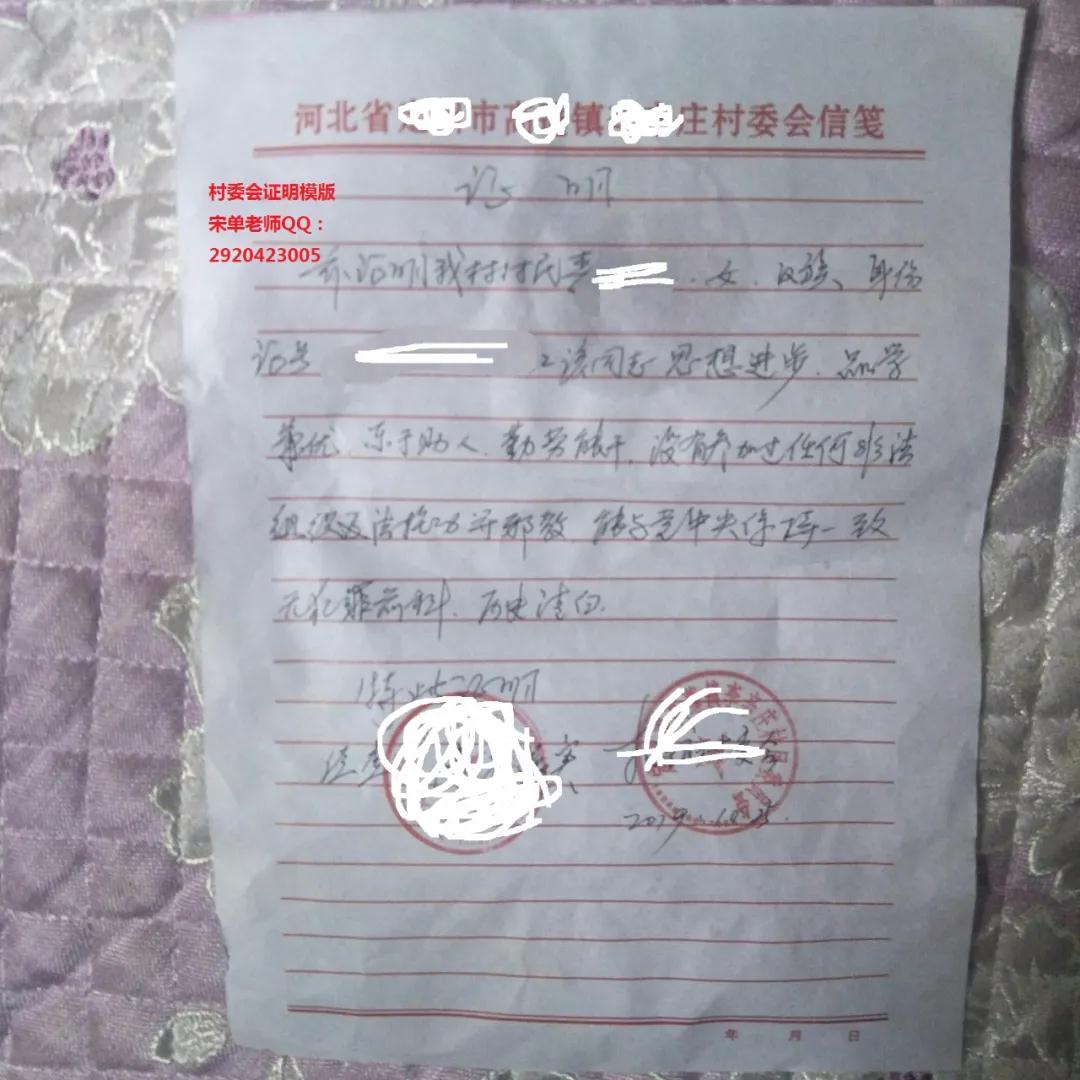 河北省 市高 镇 庄村委会信笺
村委会证明模版
宋单老师QQ：
2920423005
证 明
兹证明我村村民袁 女、汉族、身份
证号 该同志思想进步、品学
兼优、乐于助人、勤劳能干、没有参加过任何非法
组织及法轮功并邪教 能与党中央保持一致
无犯罪前科、历史清白.
特此证明
年 月 日